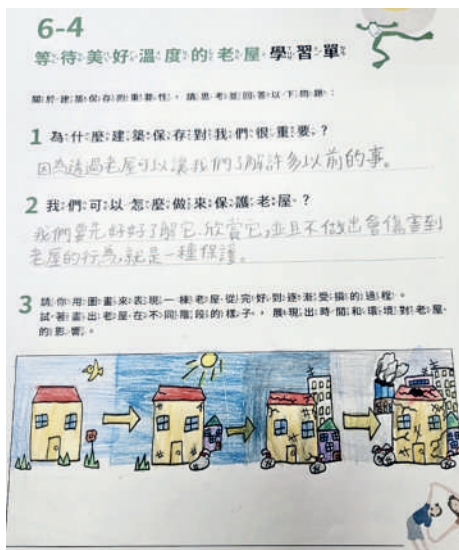 6-4
等待美好溫度的老屋 學習單
關於建築保存的重要性，請思考並回答以下問題：
1 為什麼建築保存對我們很重要？
因為透過老屋可以讓我們了解許多以前的事。
2 我們可以怎麼做來保護老屋？
我們要先好好了解它、欣賞它，並且不做出會傷害到
老屋的行為，就是一種保護。
3 請你用圖畫來表現一棟老屋從完好到逐漸受損的過程。
試著畫出老屋在不同階段的樣子，展現出時間和環境對老屋
的影響。